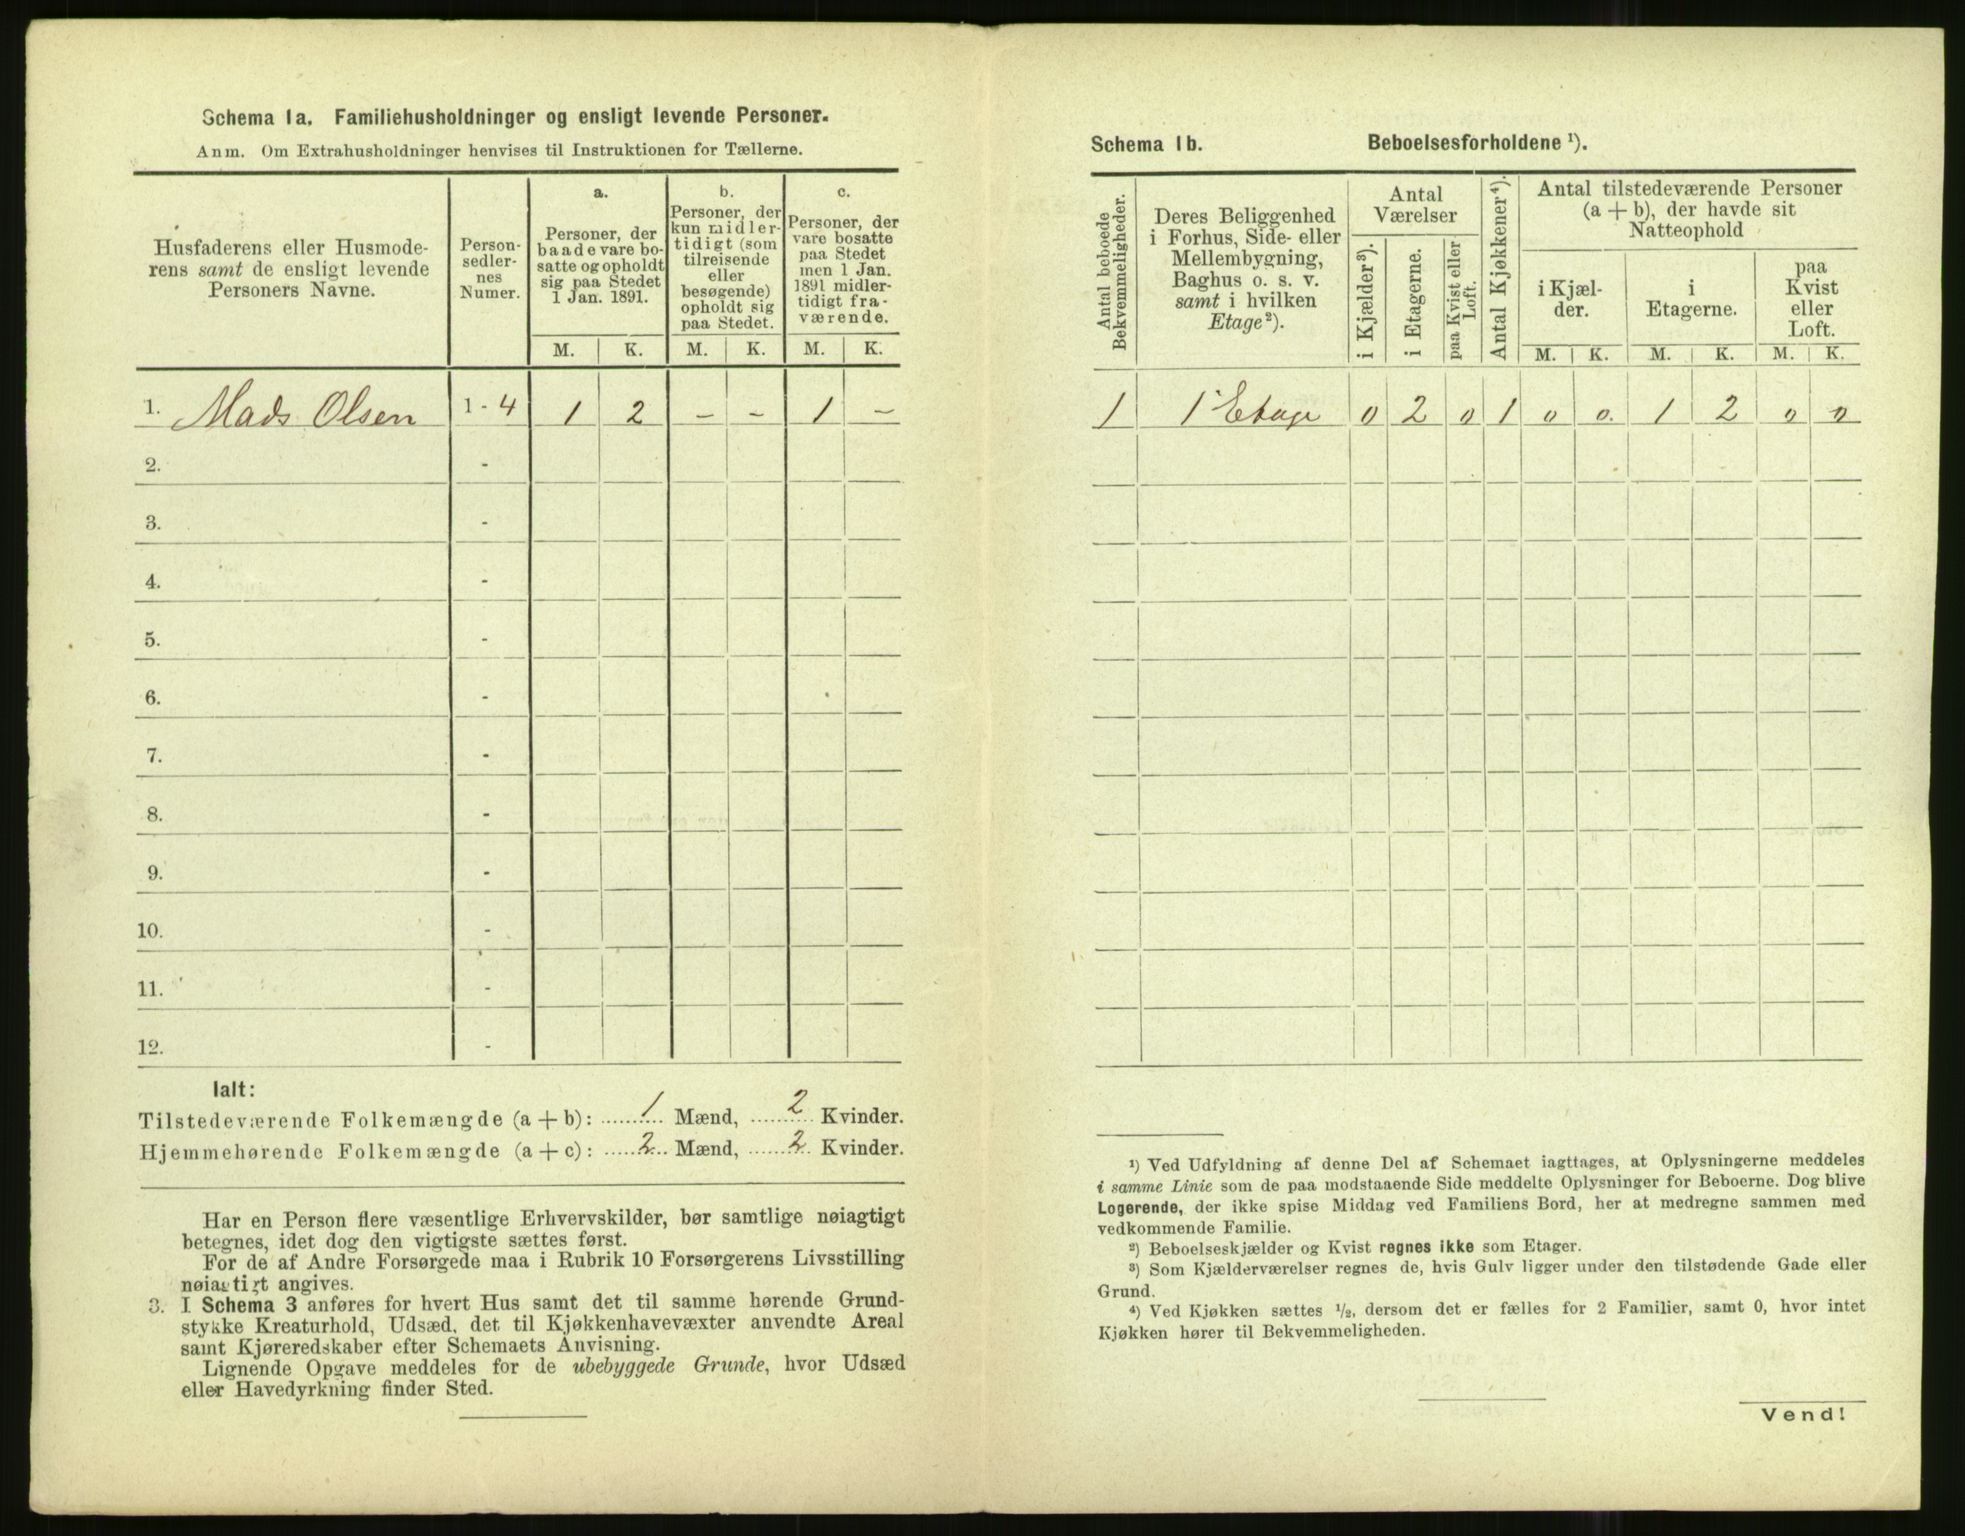 Schema 1a. Familiehusholdninger og ensligt levende Personer.
Anm. Om Extrahusholdninger henvises til Instruktionen for Tællerne.
Husfaderens eller Husmode-
rens samt de ensligt levende
Personers Navne.
Person-
sedler-
nes
Numer.
a.
Personer, der
baade vare bo-
satte og opholdt
sig paa Stedet
1 Jan. 1891.
b.
Personer, der
kun midler-
tidigt (som
tilreisende
eller
besøgende)
opholdt sig
paa Stedet.
c.
Personer, der
vare bosatte
paa Stedet
men 1 Jan.
1891 midler-
tidigt fra-
værende.
M. K. M. K. M. K.
1. Mads Olsen 1 - 4 1 2 - - 1 -
2. -
3. -
4. -
5. -
6. -
7. -
8. -
9. -
10. -
11. -
12. -
Ialt:
Tilstedeværende Folkemængde (a + b): 1 Mænd, 2 Kvinder.
Hjemmehørende Folkemængde (a + c): 2 Mænd, 2 Kvinder.
Har en Person flere væsentlige Erhvervskilder, bør samtlige nøiagtigt
betegnes, idet dog den vigtigste sættes først.
For de af Andre Forsørgede maa i Rubrik 10 Forsørgerens Livsstilling
nøiagtigt angives.
3. I Schema 3 anføres for hvert Hus samt det til samme hørende Grund-
stykke Kreaturhold, Udsæd, det til Kjøkkenhavevæxter anvendte Areal
samt Kjøreredskaber efter Schemaets Anvisning.
Lignende Opgave meddeles for de ubebyggede Grunde, hvor Udsæd
eller Havedyrkning finder Sted.
Schema 1b. Beboelsesforholdene ¹).
Antal beboede
Bekvemmeligheder.
Deres Beliggenhed
i Forhus, Side- eller
Mellembygning,
Baghus o. s. v.
samt i hvilken
Etage²).
Antal
Værelser
i Kjælder³).
i Etagerne.
paa Kvist eller
Loft.
Antal Kjøkkener⁴).
Antal tilstedeværende Personer
(a + b), der havde sit
Natteophold
i Kjæl-
der.
i
Etagerne.
paa
Kvist
eller
Loft.
M. K. M. K. M. K.
1 1 Etage 0 2 0 1 0 0. 1 2 0 0
¹) Ved Udfyldning af denne Del af Schemaet iagttages, at Oplysningerne meddeles
i samme Linie som de paa modstaaende Side meddelte Oplysninger for Beboerne. Dog blive
Logerende, der ikke spise Middag ved Familiens Bord, her at medregne sammen med
vedkommende Familie.
²) Beboelseskjælder og Kvist regnes ikke som Etager.
³) Som Kjælderværelser regnes de, hvis Gulv ligger under den tilstødende Gade eller
Grund.
⁴) Ved Kjøkken sættes ½, dersom det er fælles for 2 Familier, samt 0, hvor intet
Kjøkken hører til Bekvemmeligheden.
Vend!